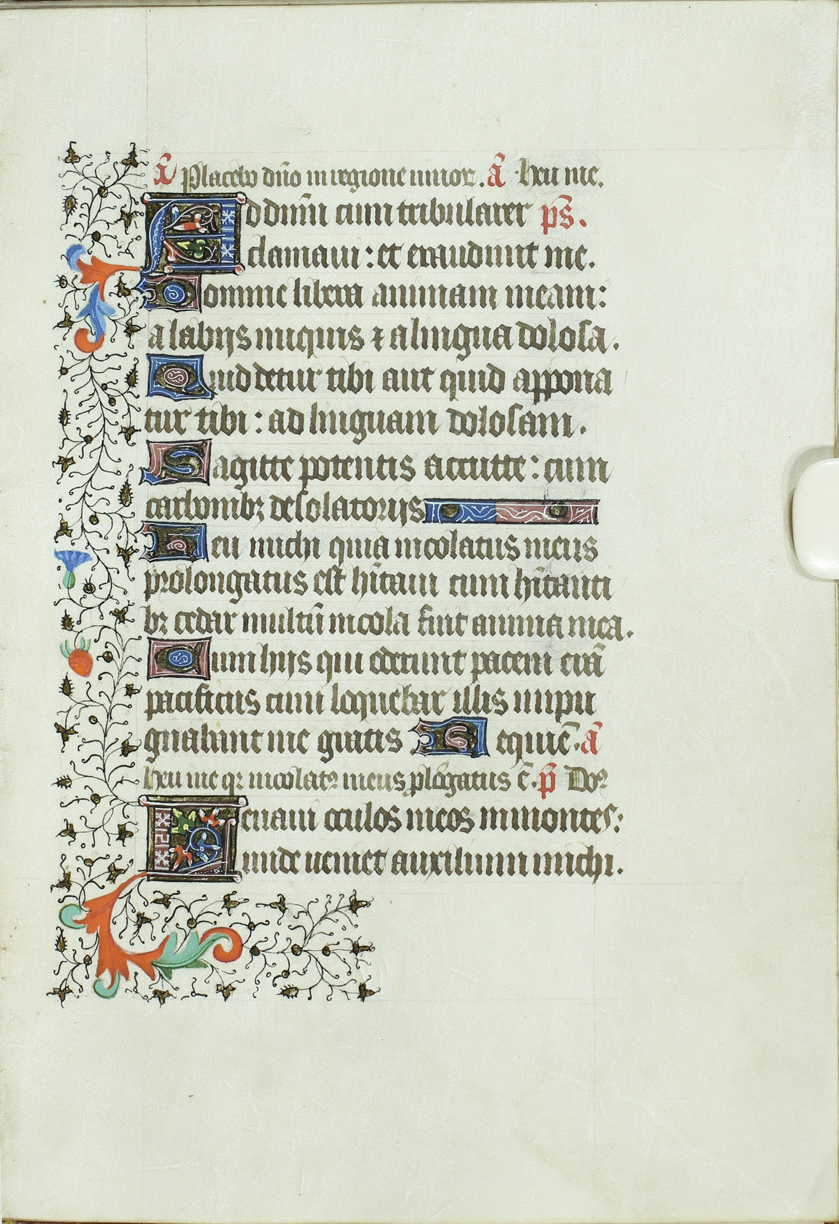 ā Placebo dño in regione uiuor. ā Heu me.
Ad dñm cum tribularer ps̄.
clamaui : et exaudiuit me.
Domine libera animam meam :
a labijs iniquis ⁊ a lingua dolosa.
Quid detur tibi aut quid appona
tur tibi : ad linguam dolosam.
Sagitte potentis accutte : cum
carbonibꝫ desolatorijs
Heu michi quia incolatus meus
prolongatus est hĩtaui cum hĩtanti
bꝫ cedar multũ incola fuit anima mea.
Cum hijs qui oderunt pacem erã
pacificus cum loquebar illis inpu
gnabant me gratis Requiē. ā
heu me qꝛ incolatꝰ meus plõgatus ē. p̄ Doꝰ
Leuaui oculos meos in montes :
unde ueniet auxilium michi.